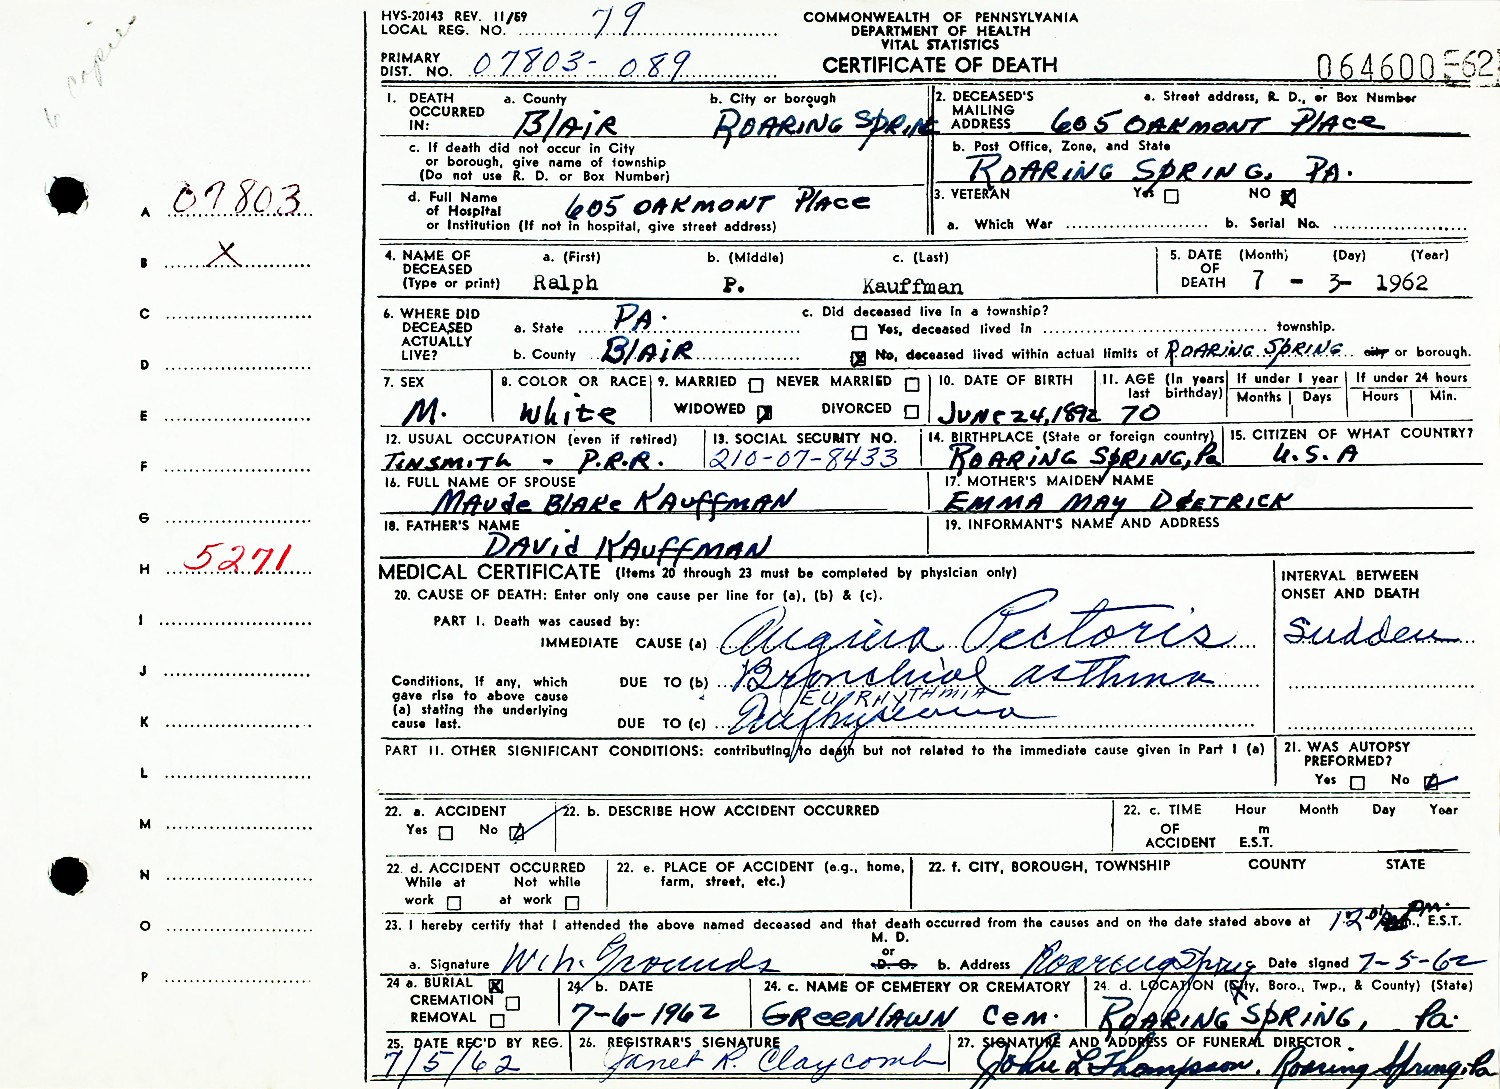 HVS-20143 REV. 11/59
LOCAL REG. NO. 79
COMMONWEALTH OF PENNSYLVANIA
DEPARTMENT OF HEALTH
VITAL STATISTICS
CERTIFICATE OF DEATH
PRIMARY
DIST. NO. 07803-089
064600-62
1. DEATH OCCURRED IN: a. County BlAiR b. City or borough ROARiNG SPRiN
2. DECEASED'S MAILING ADDRESS a. Street address, R. D., or Box Number 605 OAKMONT PlAce
c. If death did not occur in City
or borough, give name of township
(Do not use R. D. or Box Number)
b. Post Office, Zone, and State
ROARiNG SPRiNG, PA.
d. Full Name
of Hospital 605 OAKMONT PlAce
or Institution (If not in hospital, give street address)
3. VETERAN Yes NO X
a. Which War b. Serial No.
4. NAME OF DECEASED (Type or print) a. (First) Ralph b. (Middle) P. c. (Last) Kauffman
5. DATE OF DEATH (Month) (Day) (Year) 7 - 3- 1962
6. WHERE DID DECEASED ACTUALLY LIVE? a. State PA.
b. County BlAiR
c. Did deceased live in a township?
Yes, deceased lived in township.
X No, deceased lived within actual limits of ROARiNG SPRiNG city or borough.
7. SEX M.
8. COLOR OR RACE White
9. MARRIED NEVER MARRIED
WIDOWED X DIVORCED
10. DATE OF BIRTH JUNE 24, 1892
11. AGE (In years last birthday) 70
If under 1 year Months Days
If under 24 hours Hours Min.
12. USUAL OCCUPATION (even if retired) TiNSMiTh - P.R.R.
13. SOCIAL SECURITY NO. 210-07-8433
14. BIRTHPLACE (State or foreign country) ROARiNG SPRiNG, Pa
15. CITIZEN OF WHAT COUNTRY? U.S.A
16. FULL NAME OF SPOUSE MAude BlAke KAuffMAN
17. MOTHER'S MAIDEN NAME EMMA MAY DEETRICK
18. FATHER'S NAME DAVid KAuffMAN
19. INFORMANT'S NAME AND ADDRESS
MEDICAL CERTIFICATE (Items 20 through 23 must be completed by physician only)
20. CAUSE OF DEATH: Enter only one cause per line for (a), (b) & (c).
INTERVAL BETWEEN
ONSET AND DEATH
PART I. Death was caused by:
IMMEDIATE CAUSE (a) Angina Pectoris Sudden
Conditions, if any, which
gave rise to above cause
(a) stating the underlying
cause last.
DUE TO (b) Bronchial asthma
EURHYTHMIA
DUE TO (c) Emphysema
PART II. OTHER SIGNIFICANT CONDITIONS: contributing to death but not related to the immediate cause given in Part I (a)
21. WAS AUTOPSY
PREFORMED?
Yes No
22. a. ACCIDENT
Yes No
22. b. DESCRIBE HOW ACCIDENT OCCURRED
22. c. TIME OF ACCIDENT Hour Month Day Year
m
E.S.T.
22. d. ACCIDENT OCCURRED
While at work Not while at work
22. e. PLACE OF ACCIDENT (e.g., home,
farm, street, etc.)
22. f. CITY, BOROUGH, TOWNSHIP COUNTY STATE
23. I hereby certify that I attended the above named deceased and that death occurred from the causes and on the date stated above at 12:01 PM., E.S.T.
a. Signature W.h. Grounds M. D. or D. O. b. Address Roaring Spring Date signed 7-5-62
24 a. BURIAL X
CREMATION
REMOVAL
24. b. DATE
7-6-1962
24. c. NAME OF CEMETERY OR CREMATORY
GREENlAWN Cem.
24. d. LOCATION (City, Boro., Twp., & County) (State)
ROARiNG SPRiNG, Pa.
25. DATE REC'D BY REG.
7/5/62
26. REGISTRAR'S SIGNATURE
Janet R. Claycomb
27. SIGNATURE AND ADDRESS OF FUNERAL DIRECTOR
John L Thompson, Roaring Spring, Pa
A 07803
B X
C
D
E
F
G
H 5271
I
J
K
L
M
N
O
P